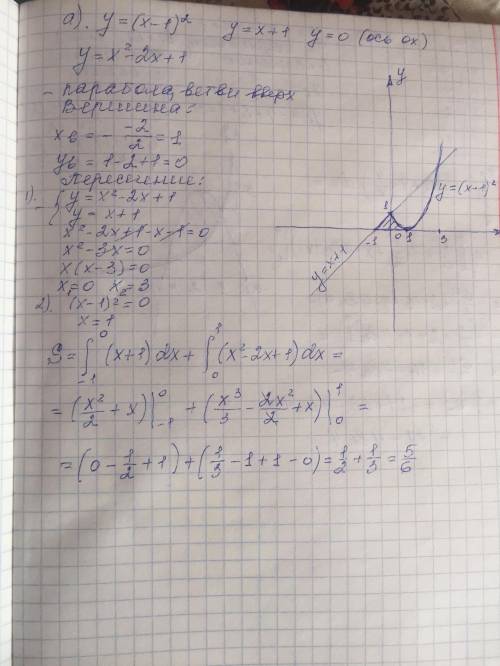 а). y=(x-1)²   y=x+1   y=0 (ось ox)
y=x²-2x+1
- парабола, ветви вверх
Вершина:
xв = - -2/2 = 1
yв = 1-2+1=0
Пересечение:
1). { y=x²-2x+1
{ y=x+1
x²-2x+1-x-1=0
x²-3x=0
x(x-3)=0
x₁=0  x₂=3
2). (x-1)²=0
x=1
S=∫₋₁⁰ (x+1)dx + ∫₀¹ (x²-2x+1)dx =
= (x²/2 + x)|₋₁⁰ + (x³/3 - 2x²/2 + x)|₀¹ =
= (0 - 1/2 + 1) + (1/3 - 1 + 1 - 0) = 1/2 + 1/3 = 5/6
y
y=(x-1)²
1
-1 0 1 3
y=x+1